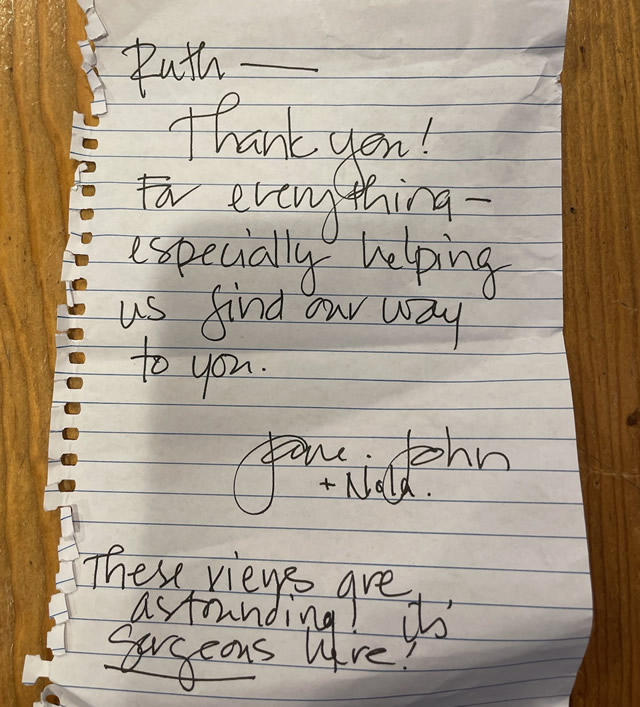 Ruth —
Thank you!
For everything —
especially helping
us find our way
to you.
Jane. John
+ Nola.
These views are
astounding! its'
gorgeous here!